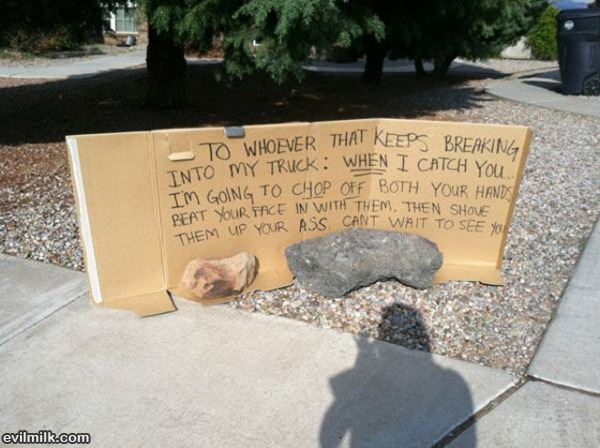 TO WHOEVER THAT KEEPS BREAKING
INTO MY TRUCK: WHEN I CATCH YOU...
I'M GOING TO CHOP OFF BOTH YOUR HANDS,
BEAT YOUR FACE IN WITH THEM, THEN SHOVE
THEM UP YOUR ASS. CANT WAIT TO SEE YOU
evilmilk.com